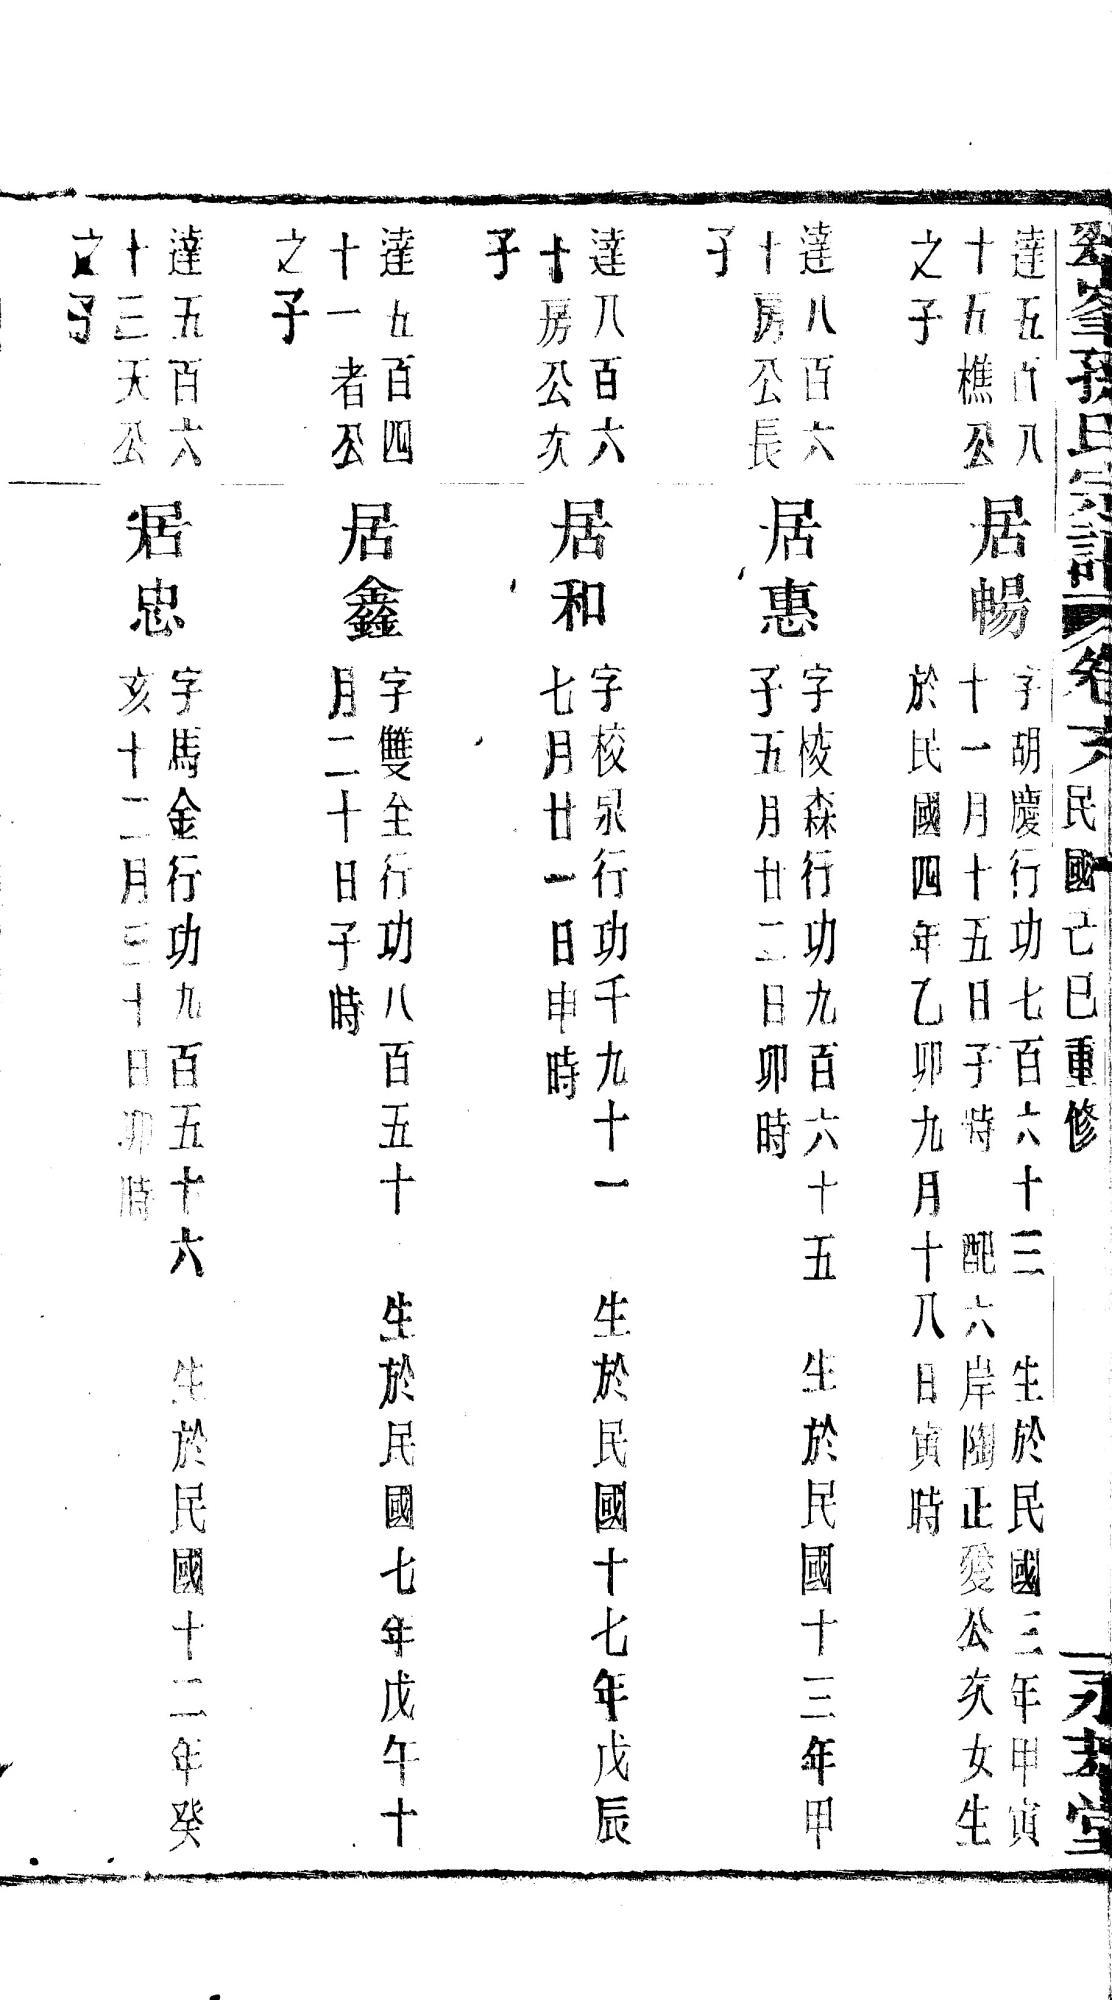 峯孫氏宗譜 卷六 民國己巳重修 永孝堂
達五百八
十五樵公
之子
居暢
字胡慶行功七百六十三 生於民國三年甲寅
十一月十五日子時 配六岸陶正愛公次女生
於民國四年乙卯九月十八日寅時
達八百六
十房公長
子
居惠
字棱森行功九百六十五 生於民國十三年甲
子五月廿二日卯時
達八百六
十房公次
子
居和
字校泉行功千九十一 生於民國十七年戊辰
七月廿一日申時
達五百四
十一者公
之子
居鑫
字雙全行功八百五十 生於民國七年戊午十
月二十日子時
達五百六
十三天公
之子
居忠
字馬金行功九百五十六 生於民國十二年癸
亥十二月三十日卯時